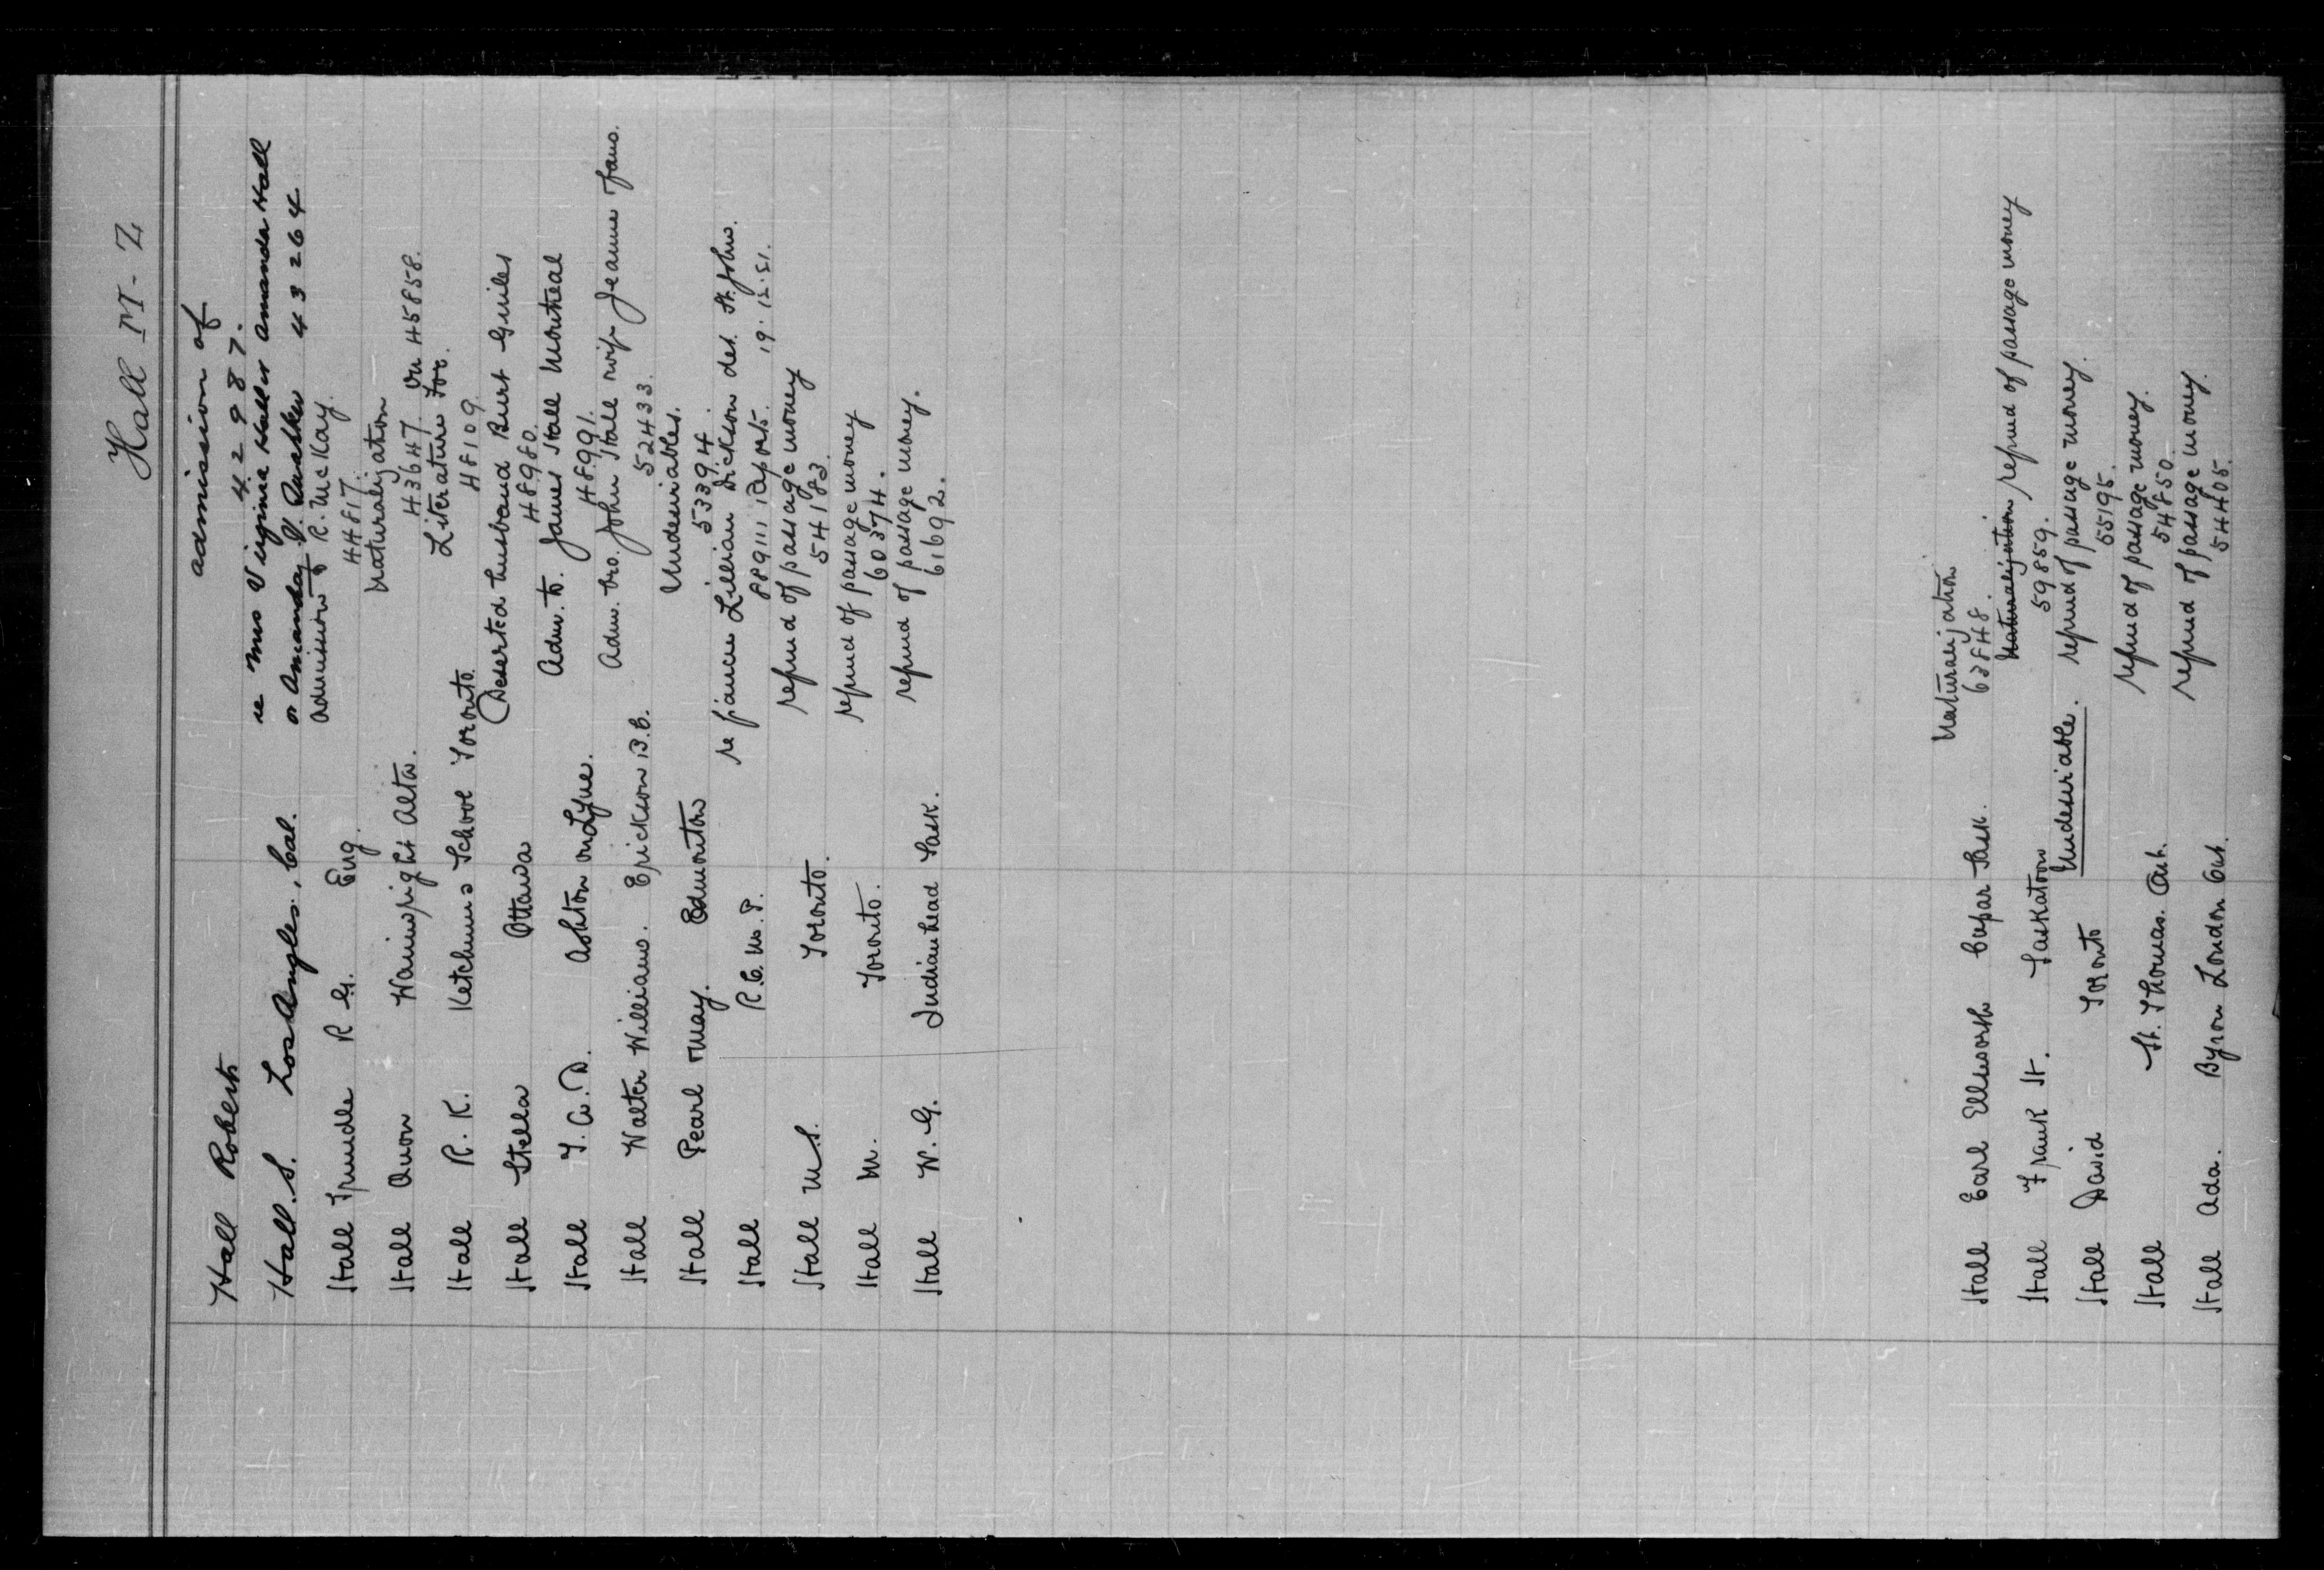 Hall M-Z
Hall Roberts admission of
42987.
Hall. S. Los Angles, Cal. re Mrs Virginia Hall or Amanda Hall
or Amanday V. 43264
Hall Trundle R G. Eng. Admission of R. McKay.
44817.
Hall Avon Wainwright Alta. Naturalization
43647. on 45858.
Hall R. K. Ketchums School Toronto. Literature For.
48109
Hall Stella Ottawa Deserted husband Burt Guiles
48980.
Hall T. A. D. Ashton on Lyne. Adm. to. James Hall Montreal
48991.
Hall Walter William. Erickson B.C. Adm. bro. John Hall wife Jeanne fam.
52433.
Hall Pearl May. Edmonton Undesirables.
53394.
Hall R. C. M. P. re fiancee Lillian Dickson det. St. Johns.
889111, Reports. 19.12.21.
Hall M S. Toronto. refund of passage money
54183.
Hall M. Toronto. refund of passage money
60374.
Hall W. G. Indian head Sask. refund of passage money.
61692.
Hall Earl Ellsworth Cupar Sask. Naturalization
63848.
Hall Frank H. Saskatoon Naturalization refund of passage money
59859.
Hall David Toronto Undesirable. refund of passage money.
55195.
Hall St. Thomas. Ont. refund of passage money.
54850.
Hall Ada. Byron London Ont. refund of passage money.
54405.